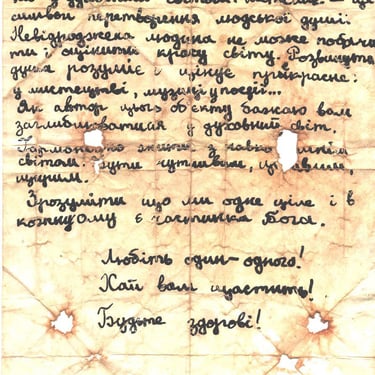 це
символ перетворення людської душі.
Невідроджена людина не може побачи
ти і оцінити красу світу. Розвинута
душа розуміє і цінує прекрасне:
у мистецтві, музиці, поезії...
Як автор цього об'єкту бажаю вам
заглиблюватися у духовний світ.
жити з
світом. Бути чутливим,
щирим.
Зрозуміти що ми одне ціле і в
кожному є частинка Бога.
Любіть один-одного!
Хай вам щастить!
Будьте здорові!